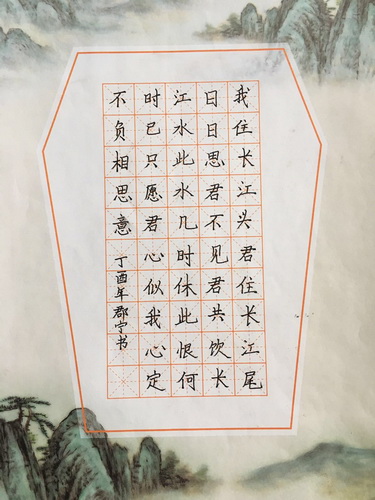 我住长江头君住长江尾
日日思君不见君共饮长
江水此水几时休此恨何
时已只愿君心似我心定
不负相思意
丁酉年郡宁书